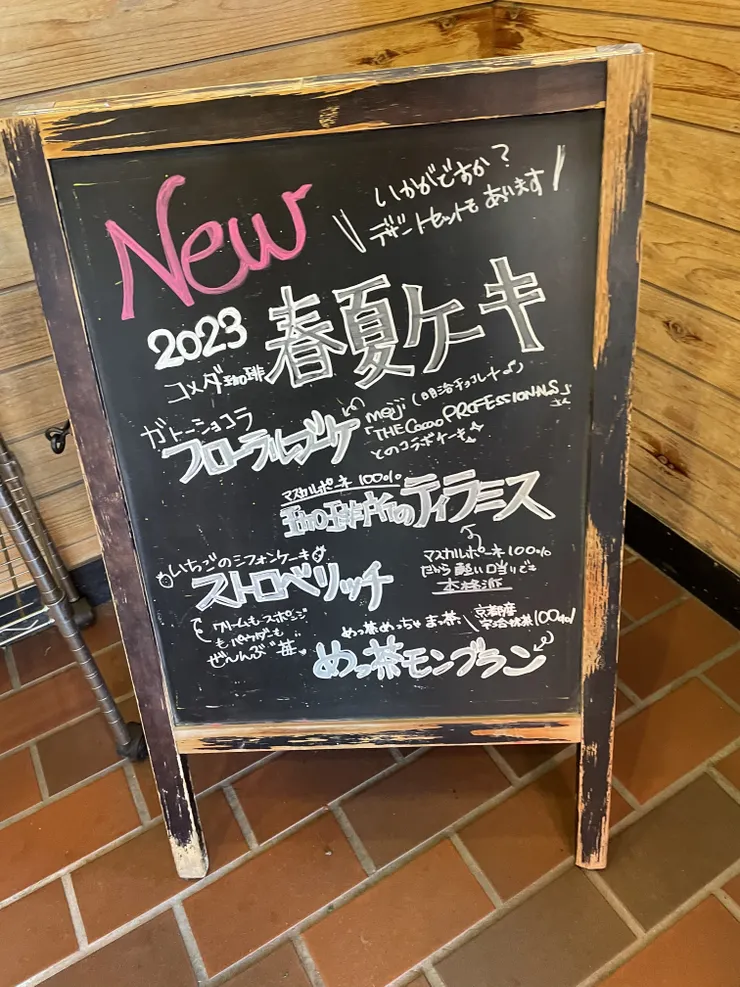 New
いかがですか?
デザートセットもあります
2023
コメダ珈琲
春夏ケーキ
ガトーショコラ
フローラルブーケ
meiji (明治チョコレート♪)
「THE Cacao PROFESSIONALS」さん
とのコラボケーキ
マスカルポーネ100%
珈琲所のティラミス
マスカルポーネ100%
だから軽い口当りで
本格派
いちごのシフォンケーキ
ストロベリッチ
クリームもスポンジ
もパウダーも
ぜんんぶ苺
めっ茶めっちゃま茶
京都産
宇治抹茶100%!
めっ茶モンブラン